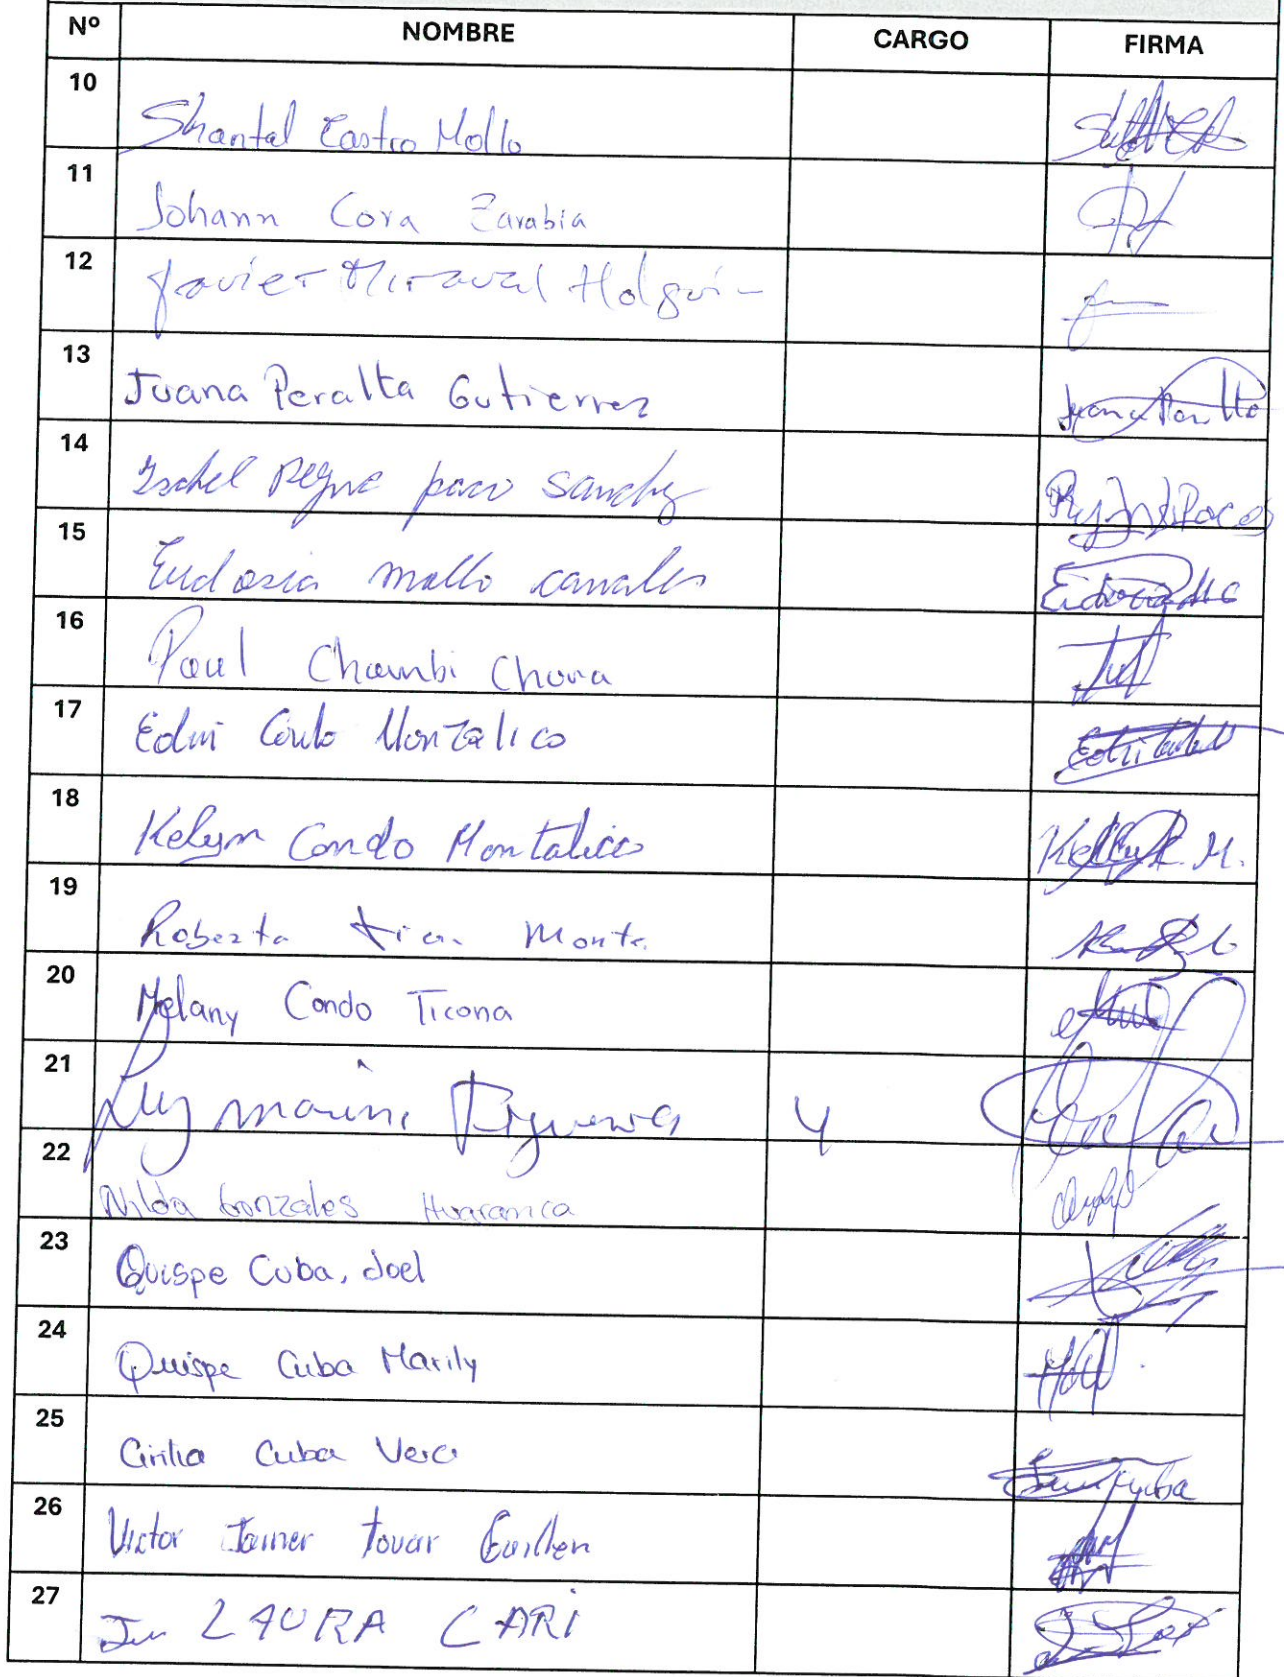 Nº NOMBRE CARGO FIRMA
10 Shantal Castro Mollo
11 Johann Cora Zarabia
12 Javier Miraval Holgui-
13 Juana Peralta Gutierrez Juana Peralta
14 Ischel Regne paco sanchez
15 Eudosia mollo canales
16 Paul Chambi Chura
17 Edwi Condo Monzalico
18 Kelym Condo Montalico
19 Roberta Monte
20 Melany Condo Ticona
21 Luz marina Figueroa
22 Nilda Gonzales Huaranca
23 Quispe Cuba, Joel
24 Quispe Cuba Marily
25 Cirilia Cuba Vera
26 Victor Jaimer Tovar Guillen
27 LAURA CARI